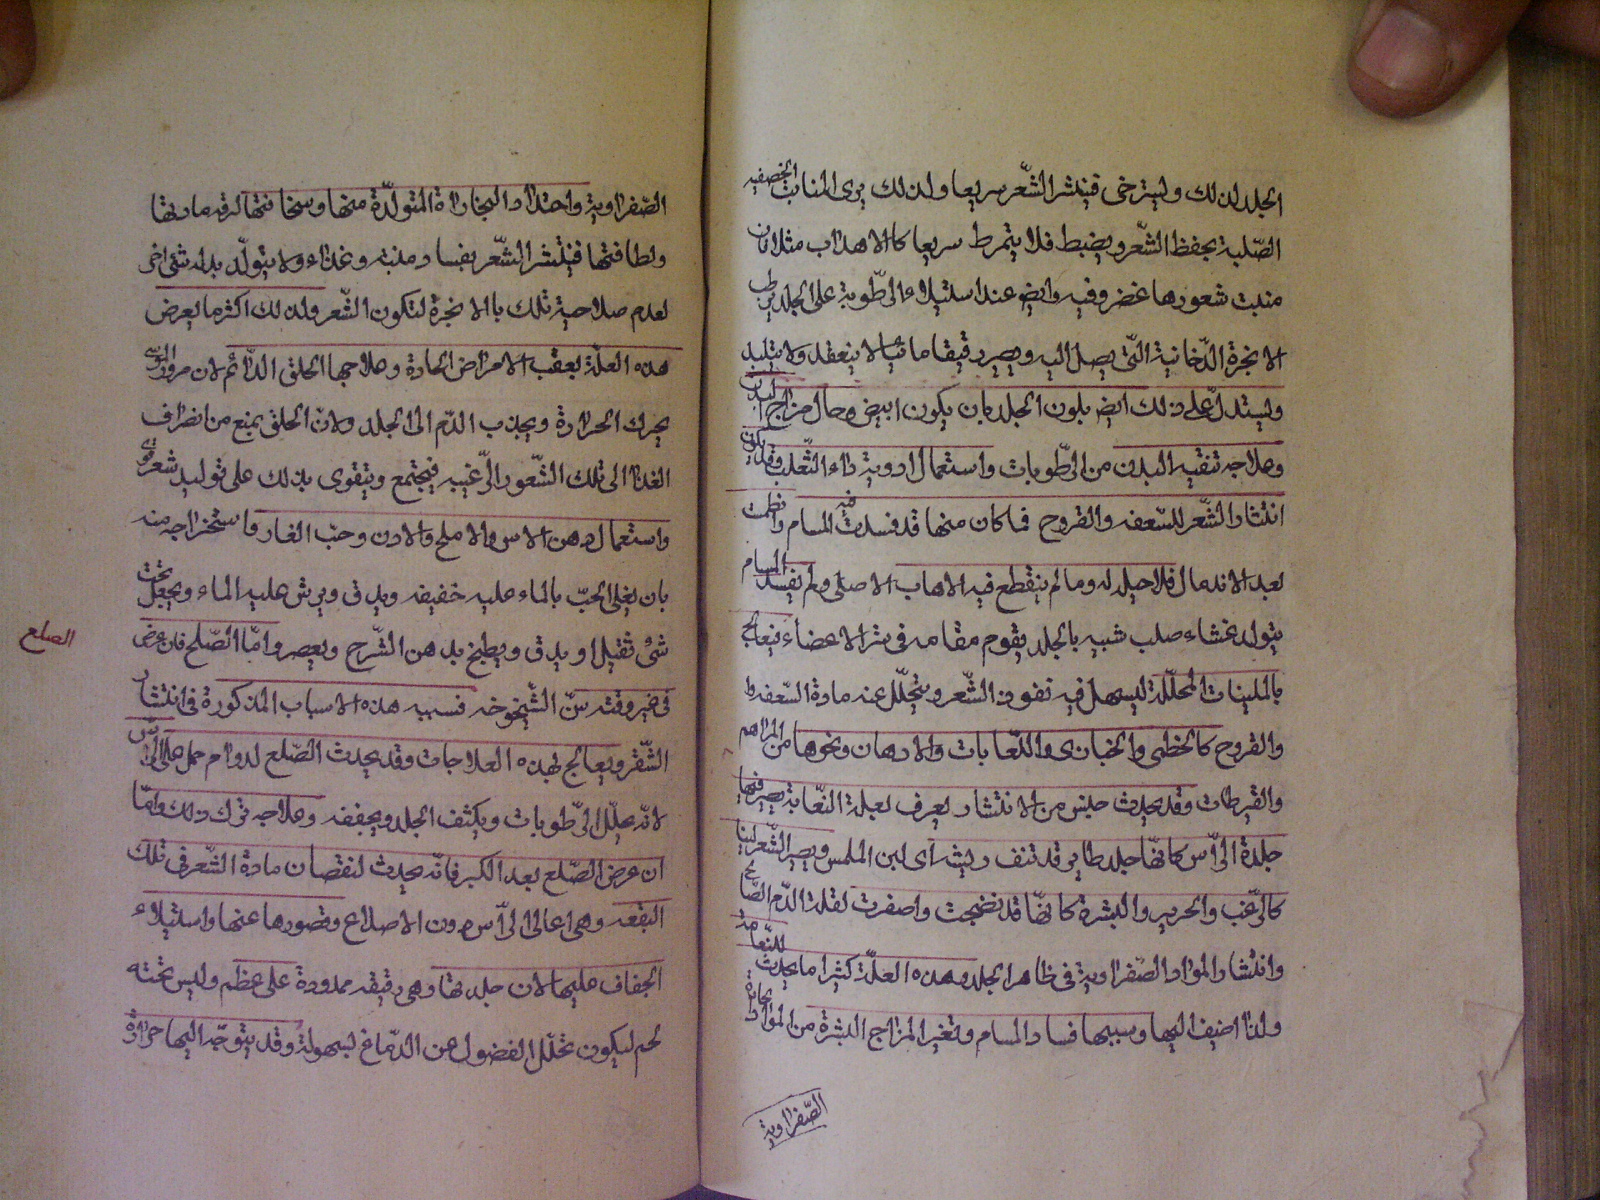 الجلد لذلك ويسترخى فينتثر الشّعر سريعا ولذلك يرى المنابت الخصفيه
الصّلبة يحفظ الشّعر ويضبط فلا يتمرط سريعا كالاهداب مثلا فان
منبت شعورها غضروفيه وايض عند استيلاء الرّطوبة على الجلد يرطب
الابخرة الدّخانية الّتى يصل اليه ويصير رقيقا مائيا لا ينعقد ولا يتلبد
ويستدلّ على ذلك ايض بلون الجلد بان يكون ابيض وحال مزاج البدن
وعلاجه تنقيه البدن من الرّطوبات واستعمال ادوية داء الثّعلب وقد يكون
انتثار الشّعر للسّعفه والقروح فما كان منها قد فسدت فيه المسام وانطمت
بعد الاندمال فلا حيلة له وما لم ينقطع فيه الاهاب الاصلى ولم يفسد المسام
يتولد غشاء صلب شبيه بالجلد يقوم مقامه فى سائر الاعضاء فيعالج
بالملينات المحلّلة ليسهل فيه نفوذ الشّعر ويتحلّل عنه مادة السّعفه
والقروح كالخطمى والخبازى واللّعابات والادهان ونحوها من المراهم
والقيرطات وقد يحدث جنس من الانتشار يعرف بعلة النّعامة يصير فيها
جلدة الرّأس كانّها جلد طاير قد نتف ريشه اى لين الملمس ويصير الشّعر لينا
كالزّغب والحرير والبشرة كانّها قد نضجت واصفرت لقلة الدّم الصّالح
وانتشار الموادّ الصّفراوية فى ظاهر الجلد وهذه العلّة كثيرا ما يحدث للنّعامة
ولذا اضيف اليها وسببها فساد المسام وتغير المزاج البشرة من الموادّ الحارة
الصّفراوية
الصّفراوية واحتداد البخارات المتولّدة منها وسخافتها لرقة مادتها
ولطافتها فينتشر الشّعر بفساد منبته وغذاء ولا يتولّد بدله شئ اخر
لعدم صلاحية تلك بالابخرة لتكون الشّعر ولذلك اكثر ما يعرض
هذه العلّة بعقب الامراض الحادة وعلاجها الحلق الدّائم لان مرور الموسى
يحرك الحرارة ويجذب الدّم الى الجلد ولانّ الحلق يمنع من انصراف
الغذا الى تلك الشّعور الزّغبيه فيجتمع ويتقوى بذلك على توليد شعر قوى
واستعمال دهن الاس والاملج والادن وحبّ الغار فاستخراجه منه
بان يغلى الحبّ بالماء عليه خفيفه ويدق ويرش عليه الماء ويجعل تحت
شئ ثقيل او يدق ويطبخ بدهن الشّرج ويعصر وامّا الصّلع فان عرض
الصلع
فى غير وقته سنّ الشّيخوخه فسببه هذه الاسباب المذكورة فى انتشار
الشّعر ويعالج بهذه العلاجات وقد يحدث الصّلع لدوام حمل على الرّأس
لانّه يحلّل الرّطوبات ويكثف الجلد ويجففه وعلاجه ترك ذلك وامّا
ان عرض الصّلع بعد الكبر فانّه يحدث لنقصان مادة الشّعر فى تلك
البقعه وهى اعالى الرّأس دون الاصداغ وقصورها عنها واستيلاء
الجفاف عليها لان جلدتها وهى رقيقه ممدودة على عظم وليس تحته
لحم ليكون تحلّل الفضول عن الدّماغ بسهولة وقد يتوجّه اليها حرارة